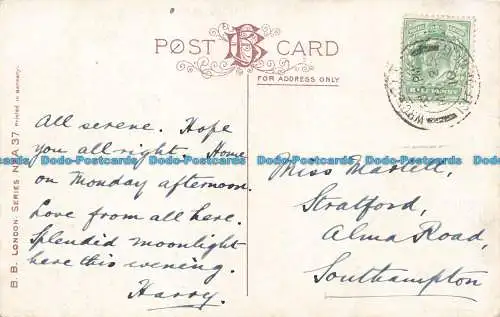 POST CARD
B B
FOR ADDRESS ONLY
HALFPENNY
B. B. LONDON. SERIES No. A 37 Printed in Germany.
All serene. Hope
you all right. Home
on Monday afternoon.
Love from all here.
Splendid moonlight
here this evening.
Harry.
Miss Martell,
Stratford,
Alma Road,
Southampton
Dodo-Postcards Dodo-Postcards Dodo-Postcards Dodo-Postcards Dodo-Postcards